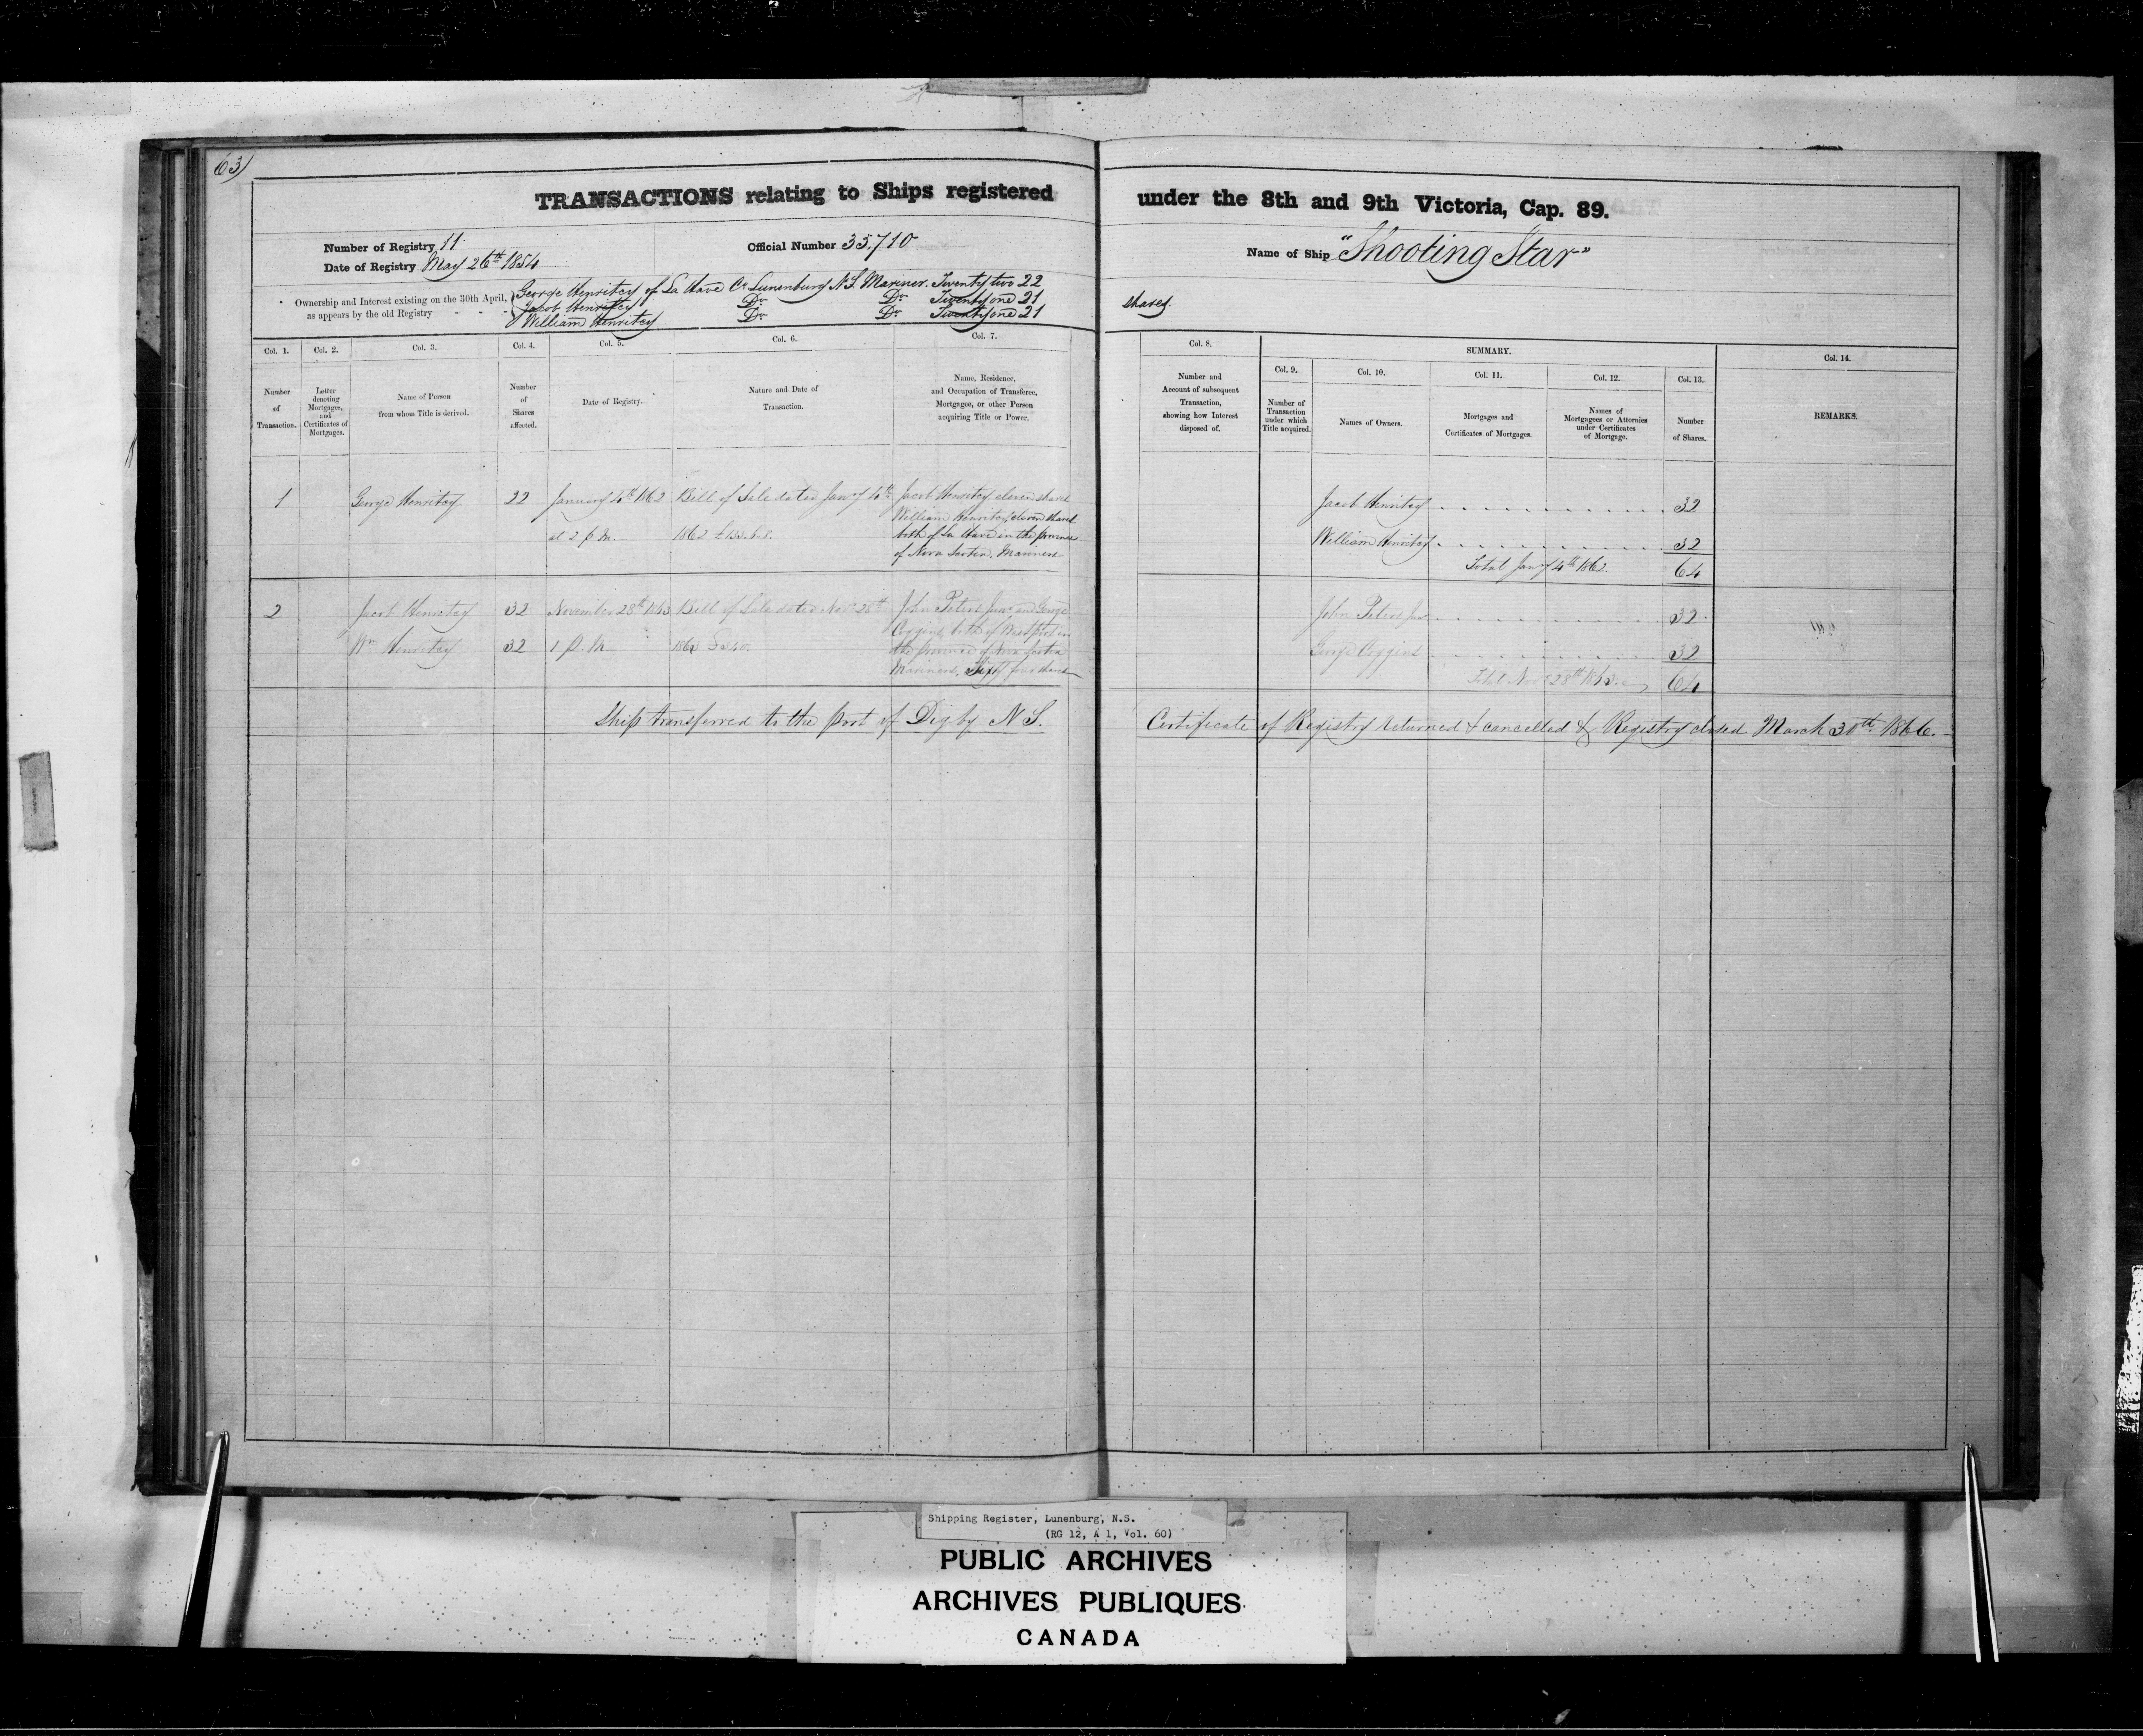 63)
TRANSACTIONS relating to Ships registered under the 8th and 9th Victoria, Cap. 89.
Number of Registry 11
Date of Registry May 26th 1854
Official Number 35,710
Name of Ship "Shooting Star"
Ownership and Interest existing on the 30th April,
as appears by the old Registry
George Henritcy of La Have Co Lunenburg N.S. Mariner. Twenty two 22 shares.
Jacob Henritcy Do Do Twenty one 21
William Henritcy Do Do Twenty one 21
Col. 1.
Number
of
Transaction.
Col. 2.
Letter
denoting
Mortgages,
and
Certificates of
Mortgages.
Col. 3.
Name of Person
from whom Title is derived.
Col. 4.
Number
of
Shares
affected.
Col. 5.
Date of Registry.
Col. 6.
Nature and Date of
Transaction.
Col. 7.
Name, Residence,
and Occupation of Transferee,
Mortgagee, or other Person
acquiring Title or Power.
Col. 8.
Number and
Account of subsequent
Transaction,
showing how Interest
disposed of.
SUMMARY.
Col. 9.
Number of
Transaction
under which
Title acquired.
Col. 10.
Names of Owners.
Col. 11.
Mortgages and
Certificates of Mortgages.
Col. 12.
Names of
Mortgagees or Attornies
under Certificates
of Mortgage.
Col. 13.
Number
of Shares.
Col. 14.
REMARKS.
1
George Henritcy
22
January 4th 1862
at 2 p.m.
Bill of Sale dated Jany 4th
1862 £133.6.8.
Jacob Henritcy eleven shares
William Henritcy eleven shares
both of La Have in the province
of Nova Scotia. Mariners
Jacob Henritcy 32
William Henritcy 32
Total Jany 4th 1862. 64
2
Jacob Henritcy 32
Wm Henritcy 32
November 28th 1863
1 p.m.
Bill of Sale dated Novr 28th
1863 £340.
John Peters Junr and George
Coggins, both of Westport in
the province of Nova Scotia
Mariners, Sixty four shares
John Peters Jur 32
George Coggins 32
Total Novr 28th 1863. 64
Ship transferred to the Port of Digby N.S. Certificate of Registry returned & cancelled & Registry closed March 30th 1866.
Shipping Register, Lunenburg, N.S.
(RG 12, A 1, Vol. 60)
PUBLIC ARCHIVES
ARCHIVES PUBLIQUES
CANADA